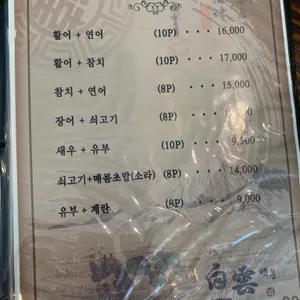 활어 + 연어 (10P) · · · 16,000
활어 + 참치 (10P) · · · 17,000
참치 + 연어 (8P) · · · 15,000
장어 + 쇠고기 (8P) · · ·
새우 + 유부 (10P) · · · 9,500
쇠고기+매콤초밥(소라) (8P) · · · 14,000
유부 + 계란 (8P) · · · 9,000
白雲 백운